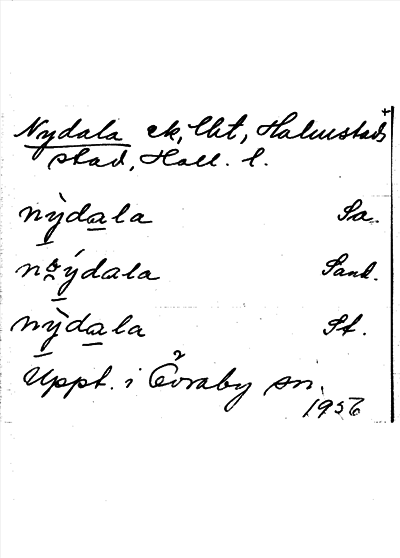 Nydala ek, lht, Halmstads +
stad, Hall. l.
nỳdala Sa.
nýdala Sand.
nỳdala St.
Uppt. i Övraby sn.
1956